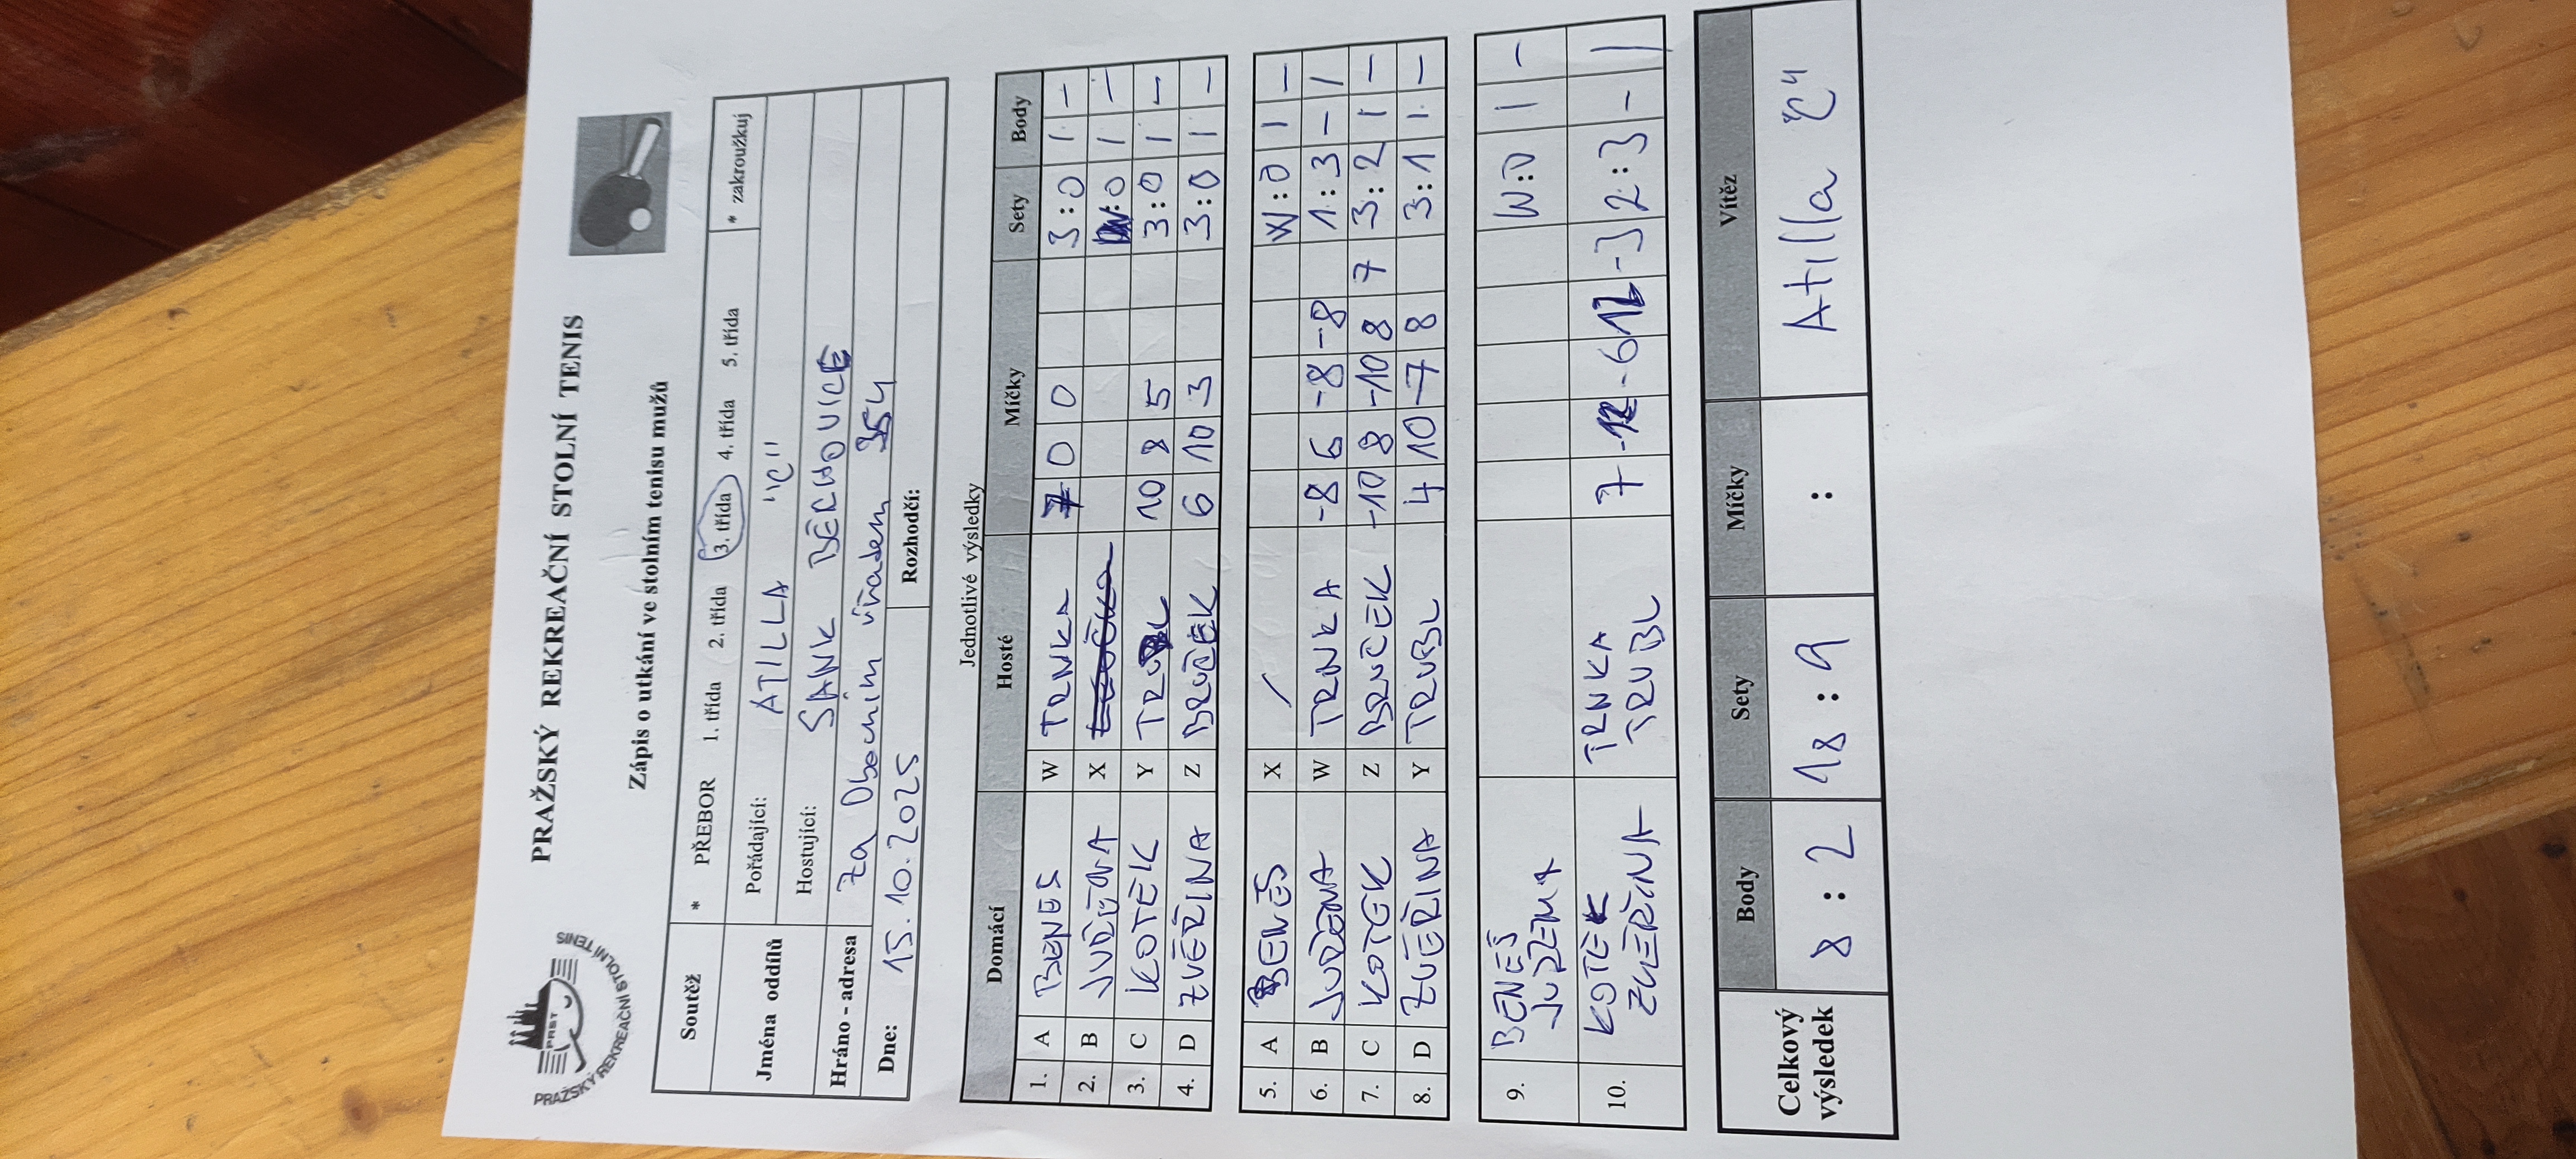 PRAŽSKÝ REKREAČNÍ STOLNÍ TENIS
PRST
PRAŽSKÝ REKREAČNÍ STOLNÍ TENIS
Zápis o utkání ve stolním tenisu mužů
Soutěž * PŘEBOR 1. třída 2. třída 3. třída 4. třída 5. třída * zakroužkuj
Jména oddílů Pořádající: ATILLA "C"
Hostující: SANK BĚCHOVICE
Hráno - adresa Za Obecním úřadem 354
Dne: 15.10.2025 Rozhodčí:
Jednotlivé výsledky
Domácí Hosté Míčky Sety Body
1. A BENEŠ W TRNKA 7 0 0 3:0 1 -
2. B JUŘENA X W:0 1 -
3. C KOTEK Y TRUBL 10 8 5 3:0 1 -
4. D ZVĚŘINA Z BRUČEK 6 10 3 3:0 1 -
5. A BENEŠ X / W:0 1 -
6. B JUŘENA W TRNKA -8 6 -8 -8 1:3 - 1
7. C KOTEK Z BRUČEK -10 8 -10 8 7 3:2 1 -
8. D ZVĚŘINA Y TRUBL 4 10 -7 8 3:1 1 -
9. BENEŠ W:0 1 -
JUŘENA
10. KOTEK TRNKA 7 -12 -6 12 -3 2:3 - 1
ZVĚŘINA TRUBL
Celkový výsledek Body Sety Míčky Vítěz
8 : 2 18 : 9 : Atilla "C"